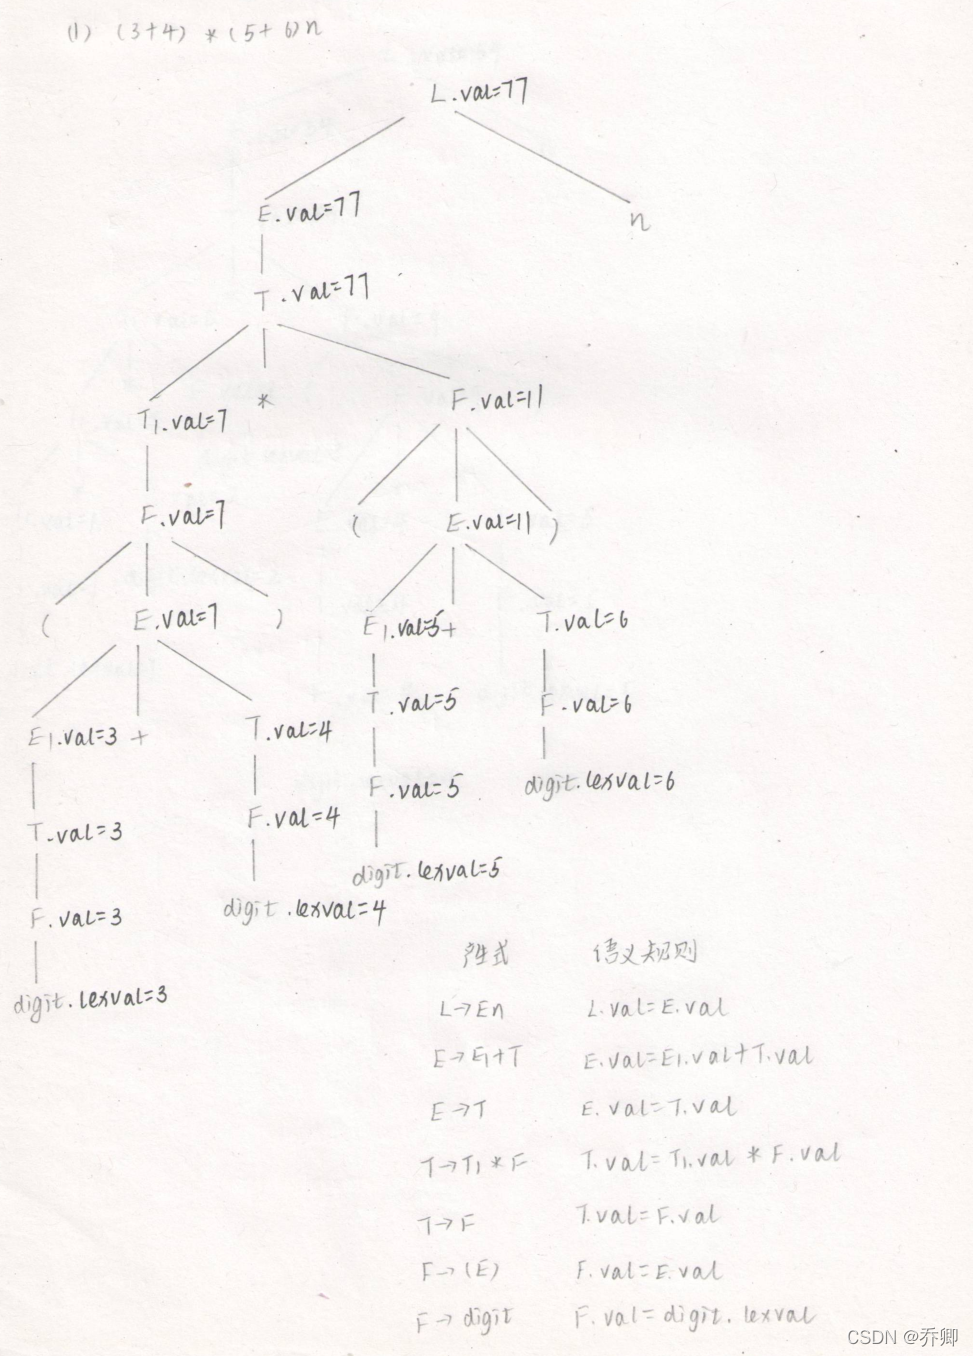 (1) (3+4) * (5+6)n
L.val=77
E.val=77 n
T.val=77
T1.val=7 * F.val=11
F.val=7 ( E.val=11 )
( E.val=7 ) E1.val=5 + T.val=6
E1.val=3 + T.val=4 T.val=5 F.val=6
T.val=3 F.val=4 F.val=5 digit.lexval=6
F.val=3 digit.lexval=4 digit.lexval=5
digit.lexval=3
产生式 语义规则
L→En L.val=E.val
E→E1+T E.val=E1.val+T.val
E→T E.val=T.val
T→T1*F T.val=T1.val * F.val
T→F T.val=F.val
F→(E) F.val=E.val
F→digit F.val=digit.lexval
CSDN @乔卿